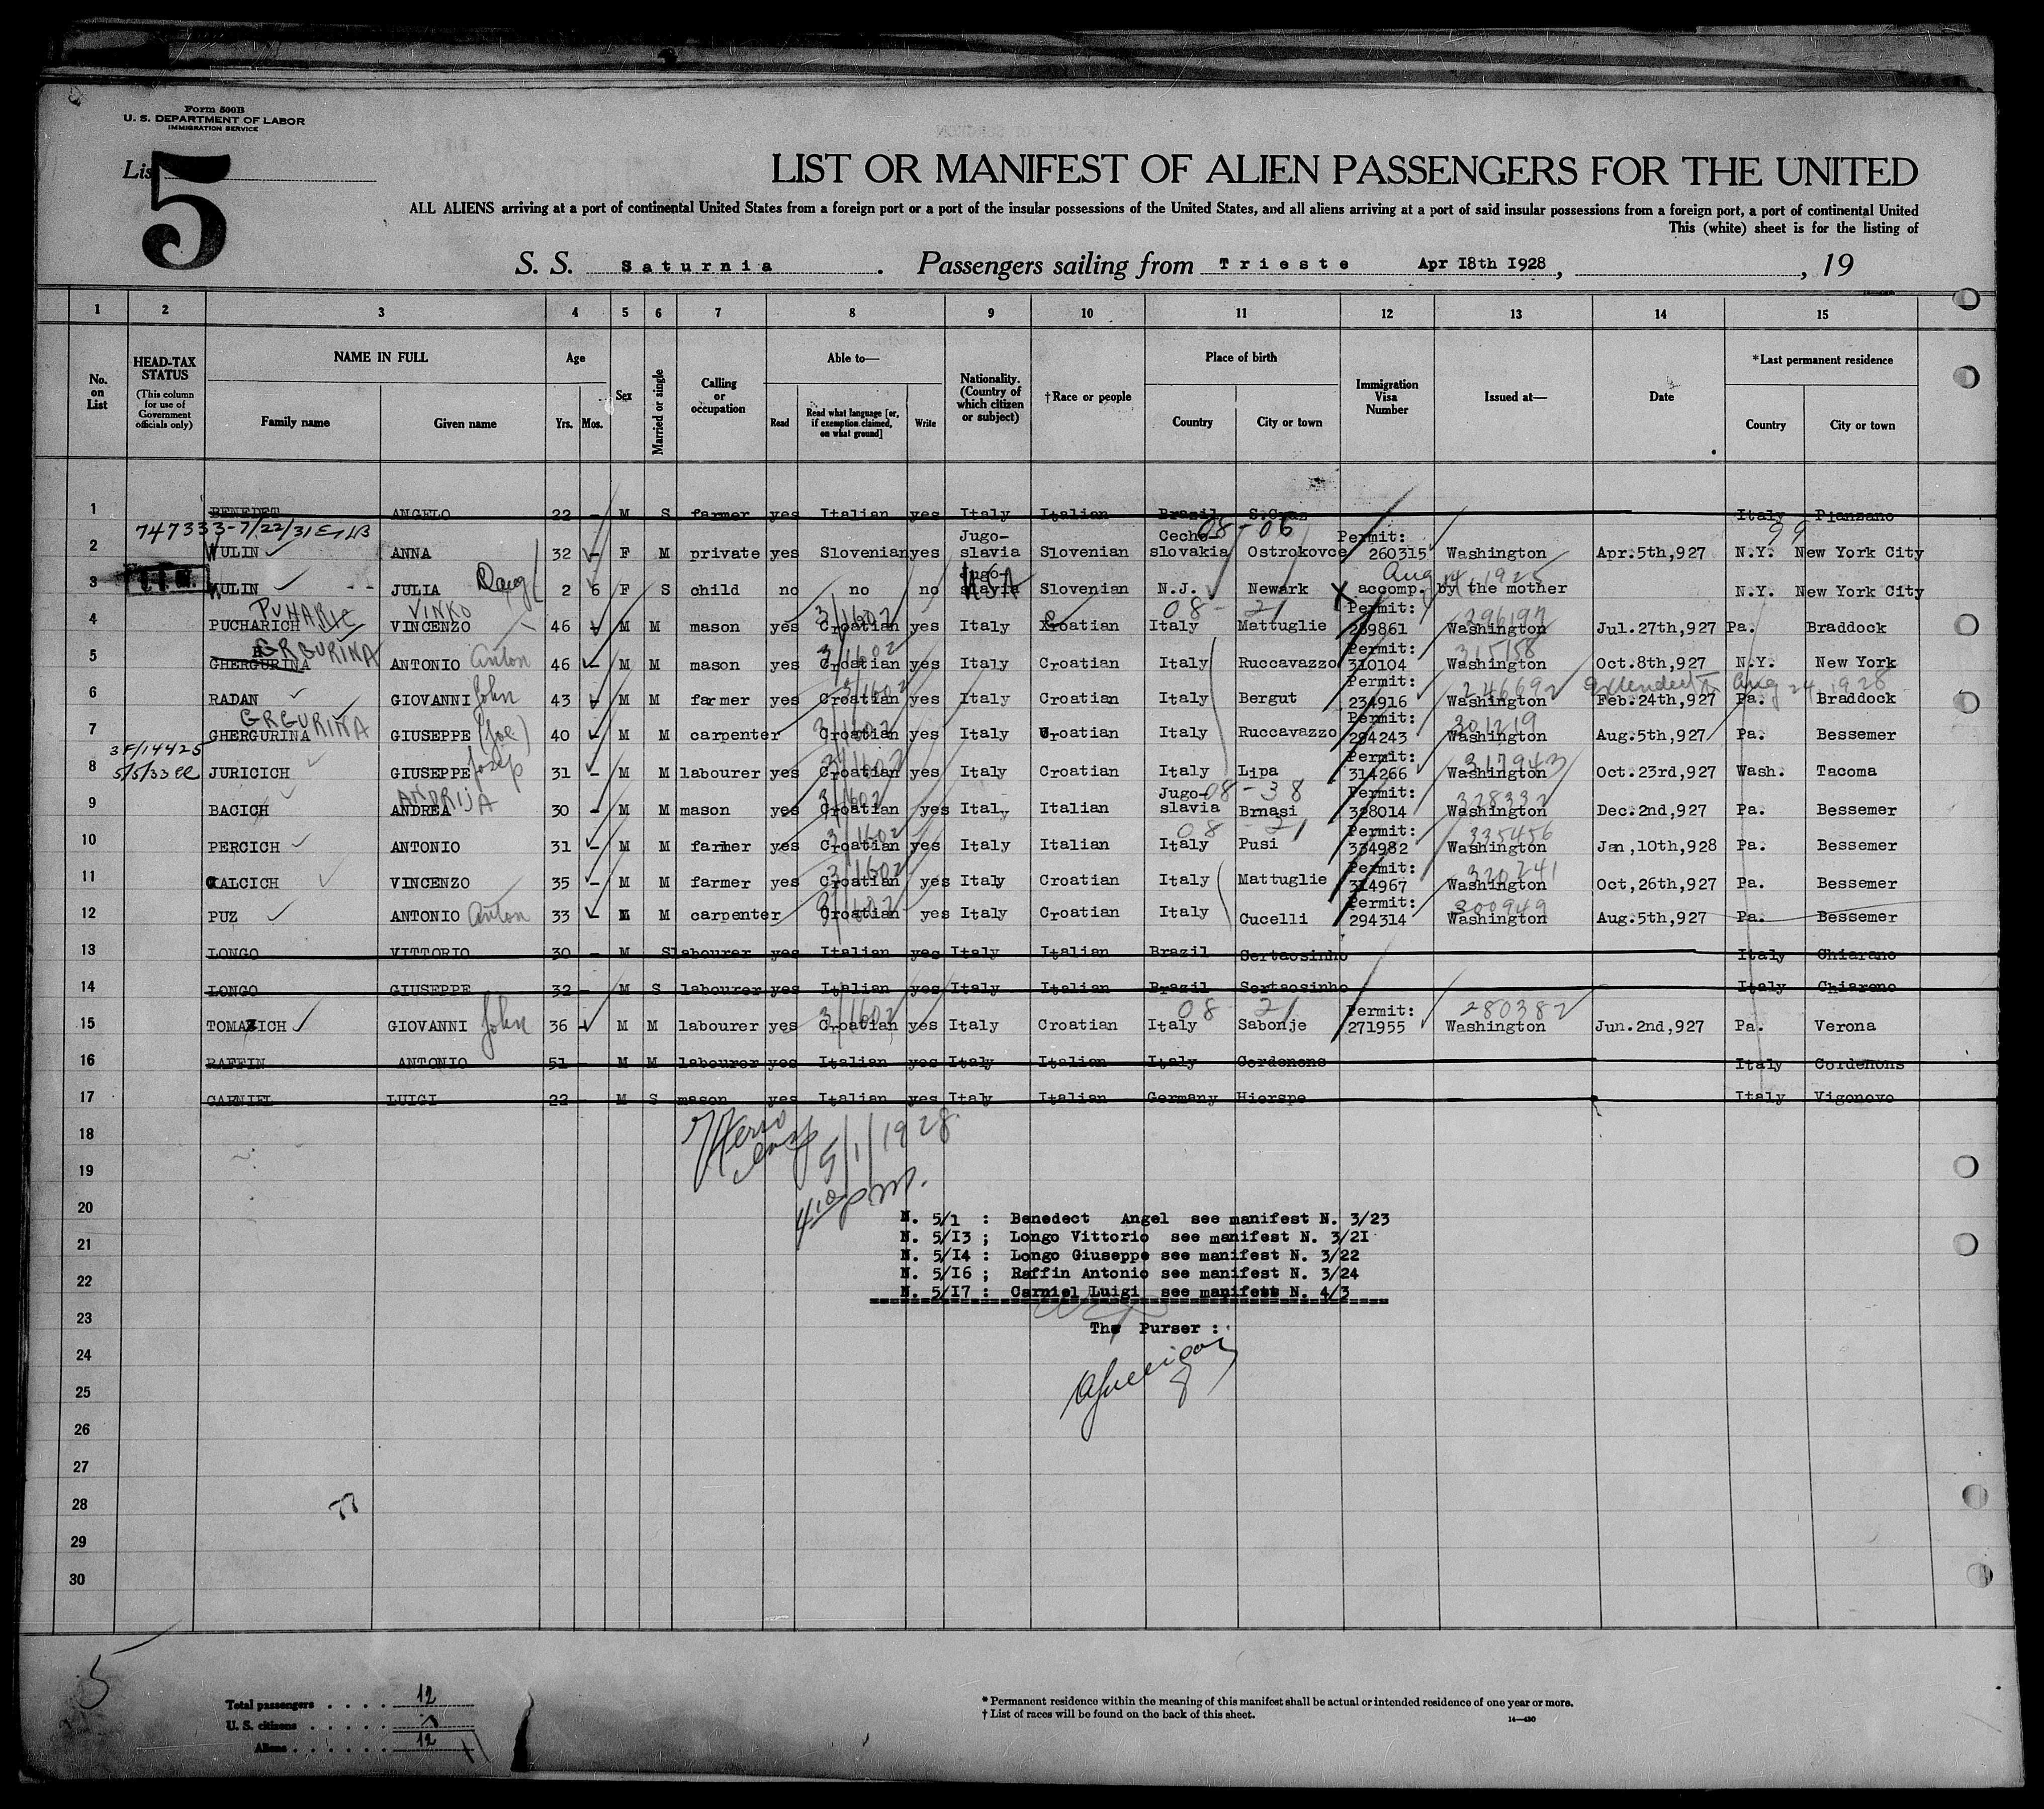 Form 500B
U. S. DEPARTMENT OF LABOR
IMMIGRATION SERVICE
List
5
LIST OR MANIFEST OF ALIEN PASSENGERS FOR THE UNITED
ALL ALIENS arriving at a port of continental United States from a foreign port or a port of the insular possessions of the United States, and all aliens arriving at a port of said insular possessions from a foreign port, a port of continental United
This (white) sheet is for the listing of
S. S. Saturnia . Passengers sailing from Trieste Apr 18th 1928, , 19
1 2 3 4 5 6 7 8 9 10 11 12 13 14 15
No. on List
HEAD-TAX STATUS (This column for use of Government officials only)
NAME IN FULL Family name Given name
Age Yrs. Mos.
Sex
Married or single
Calling or occupation
Able to— Read Read what language [or, if exemption claimed, on what ground] Write
Nationality. (Country of which citizen or subject)
†Race or people
Place of birth Country City or town
Immigration Visa Number
Issued at—
Date
*Last permanent residence Country City or town
1 BENEDET ANGELO 22 - M S farmer yes Italian yes Italy Italian Brazil S.Cruz Italy Pianzano
747333-7/22/31 08-06 99
2 WULIN ANNA 32 - F M private yes Slovenian yes Jugo-slavia Slovenian Cecho-slovakia Ostrokovce Permit: 260315 Washington Apr.5th,927 N.Y. New York City
Aug 14 1925
3 WULIN JULIA Daug 2 6 F S child no no no Jugo-slavia USA Slovenian N.J. Newark X accomp. by the mother N.Y. New York City
PUHARIC VINKO 3/1602 08-21 296197
4 PUCHARICH VINCENZO 46 - M M mason yes Croatian yes Italy Croatian Italy Mattuglie Permit: 289861 Washington Jul.27th,927 Pa. Braddock
GRGURINA 3/1602 315158
5 GHERGURINA ANTONIO Anton 46 - M M mason yes Croatian yes Italy Croatian Italy Ruccavazzo Permit: 310104 Washington Oct.8th,927 N.Y. New York
3/1602 246692 Extended to Aug 24 1928
6 RADAN GIOVANNI John 43 - M M farmer yes Croatian yes Italy Croatian Italy Bergut Permit: 234916 Washington Feb.24th,927 Pa. Braddock
GRGURINA 3/1602 301219
7 GHERGURINA GIUSEPPE (Joe) 40 - M M carpenter yes Croatian yes Italy Croatian Italy Ruccavazzo Permit: 294243 Washington Aug.5th,927 Pa. Bessemer
3F/14425 5/5/33 3/1602 317943
8 JURICICH GIUSEPPE Josip 31 - M M labourer yes Croatian yes Italy Croatian Italy Lipa Permit: 314266 Washington Oct.23rd,927 Wash. Tacoma
ANDRIJA 3/1602 08-38 328332
9 BACICH ANDREA 30 - M M mason yes Croatian yes Italy Italian Jugo-slavia Brnasi Permit: 328014 Washington Dec.2nd,927 Pa. Bessemer
3/1602 08-21 335456
10 PERCICH ANTONIO 31 - M M farmer yes Croatian yes Italy Italian Italy Pusi Permit: 334982 Washington Jan,10th,928 Pa. Bessemer
3/1602 320241
11 CALCICH VINCENZO 35 - M M farmer yes Croatian yes Italy Croatian Italy Mattuglie Permit: 314967 Washington Oct,26th,927 Pa. Bessemer
3/1602 300949
12 PUZ ANTONIO Anton 33 - M M carpenter yes Croatian yes Italy Croatian Italy Cucelli Permit: 294314 Washington Aug.5th,927 Pa. Bessemer
13 LONGO VITTORIO 30 - M S labourer yes Italian yes Italy Italian Brazil Sertaosinho Italy Chiarano
14 LONGO GIUSEPPE 32 - M S labourer yes Italian yes Italy Italian Brazil Sertaosinho Italy Chiarano
3/1602 08-21 280382
15 TOMAZICH GIOVANNI John 36 - M M labourer yes Croatian yes Italy Croatian Italy Sabonje Permit: 271955 Washington Jun.2nd,927 Pa. Verona
16 RAFFIN ANTONIO 51 - M M labourer yes Italian yes Italy Italian Italy Cordenons Italy Cordenons
17 CARNIEL LUIGI 22 - M S mason yes Italian yes Italy Italian Germany Hierspe Italy Vigonovo
18
5/1/1928
19
4 10 PM.
20
N. 5/1 : Benedect Angel see manifest N. 3/23
21
N. 5/13 ; Longo Vittorio see manifest N. 3/21
N. 5/14 : Longo Giuseppe see manifest N. 3/22
22
N. 5/16 ; Raffin Antonio see manifest N. 3/24
N. 5/17 : Carniel Luigi see manifest N. 4/3
23
The Purser :
24
25
26
27
28
29
30
5
Total passengers . . . . 12
U. S. citizens . . . . .
Aliens . . . . . . 12
* Permanent residence within the meaning of this manifest shall be actual or intended residence of one year or more.
† List of races will be found on the back of this sheet.
14—430